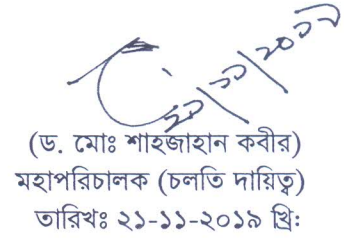 ২১/১১/২০১৯
(ড. মোঃ শাহজাহান কবীর)
মহাপরিচালক (চলতি দায়িত্ব)
তারিখঃ ২১-১১-২০১৯ খ্রি: